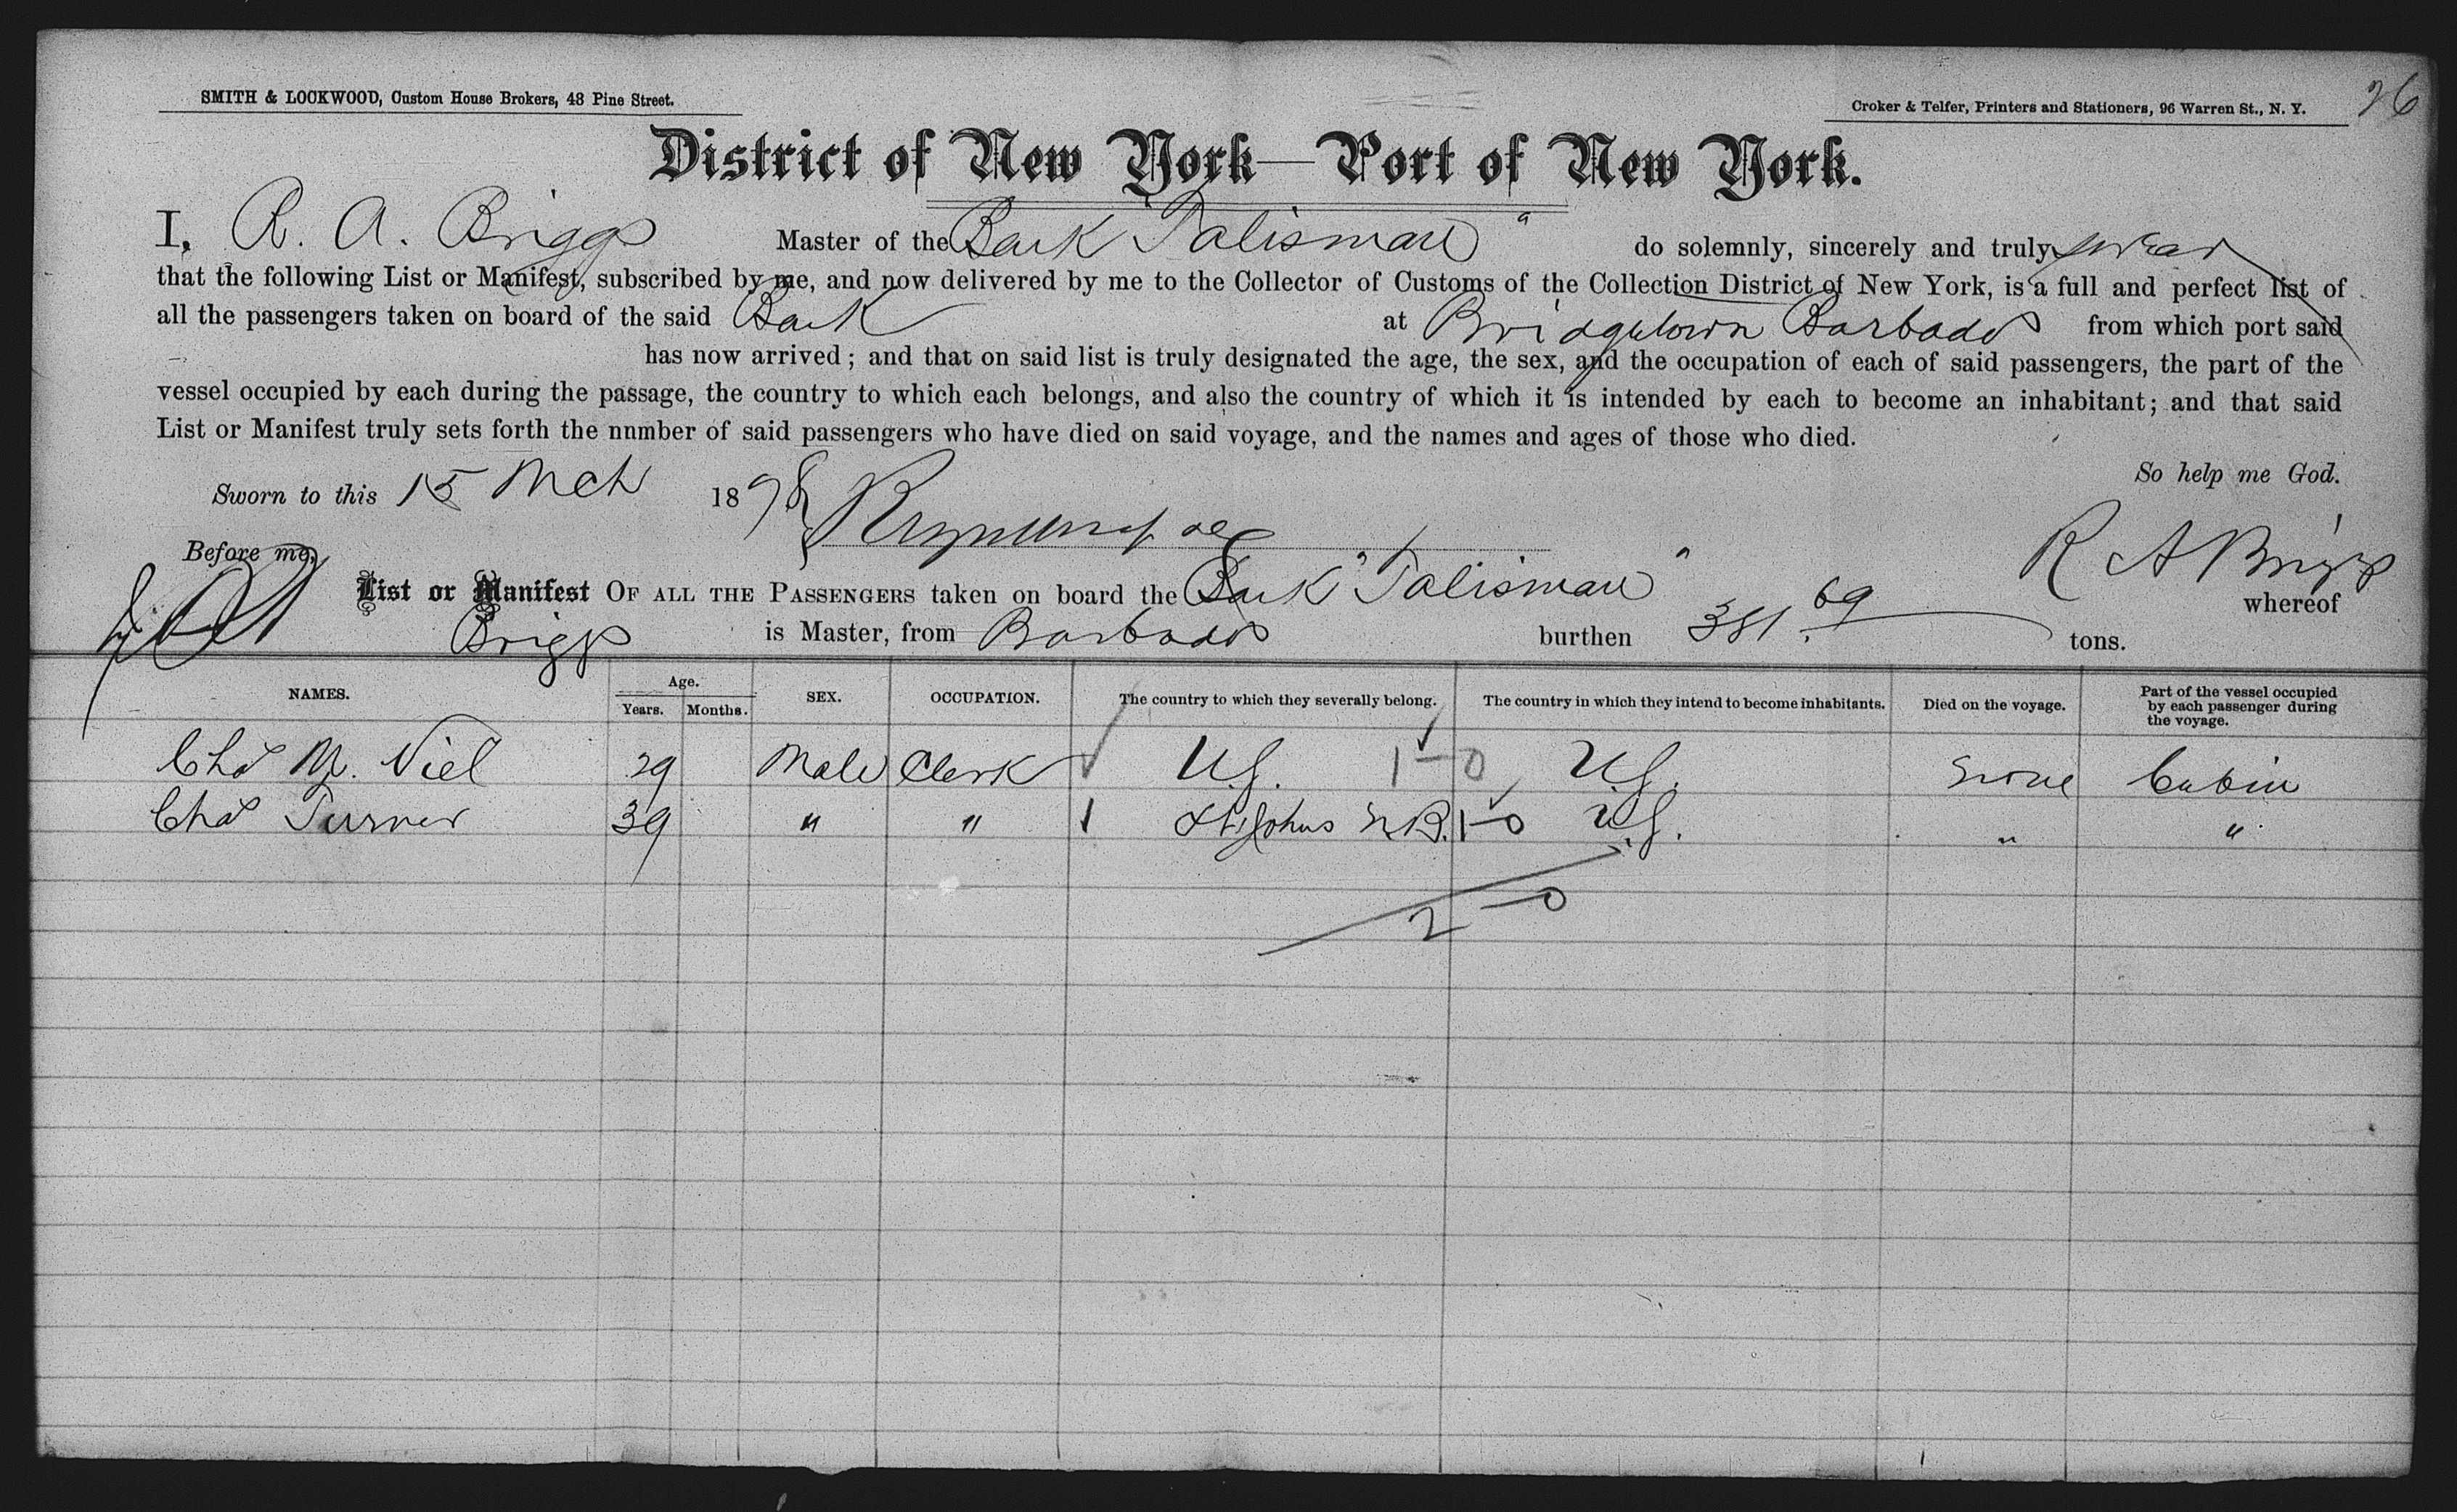 SMITH & LOCKWOOD, Custom House Brokers, 48 Pine Street.
Croker & Telfer, Printers and Stationers, 96 Warren St., N. Y.
26
District of New York—Port of New York.
I, R. A. Briggs Master of the Bark "Talisman" do solemnly, sincerely and truly swear
that the following List or Manifest, subscribed by me, and now delivered by me to the Collector of Customs of the Collection District of New York, is a full and perfect list of
all the passengers taken on board of the said Bark at Bridgetown Barbados from which port said
has now arrived; and that on said list is truly designated the age, the sex, and the occupation of each of said passengers, the part of the
vessel occupied by each during the passage, the country to which each belongs, and also the country of which it is intended by each to become an inhabitant; and that said
List or Manifest truly sets forth the nnmber of said passengers who have died on said voyage, and the names and ages of those who died.
So help me God.
Sworn to this 15 Mch 1878
R A Briggs
Before me,
List or Manifest OF ALL THE PASSENGERS taken on board the Bark "Talisman" whereof
Briggs is Master, from Barbados burthen 381.69 tons.
NAMES. Age. Years. Months. SEX. OCCUPATION. The country to which they severally belong. The country in which they intend to become inhabitants. Died on the voyage. Part of the vessel occupied by each passenger during the voyage.
Chas M. Niel 29 Male Clerk U.S. 1–0 U.S. None Cabin
Chas Turner 39 " " 1 St. Johns N.B. 1–0 U.S. " "
2–0